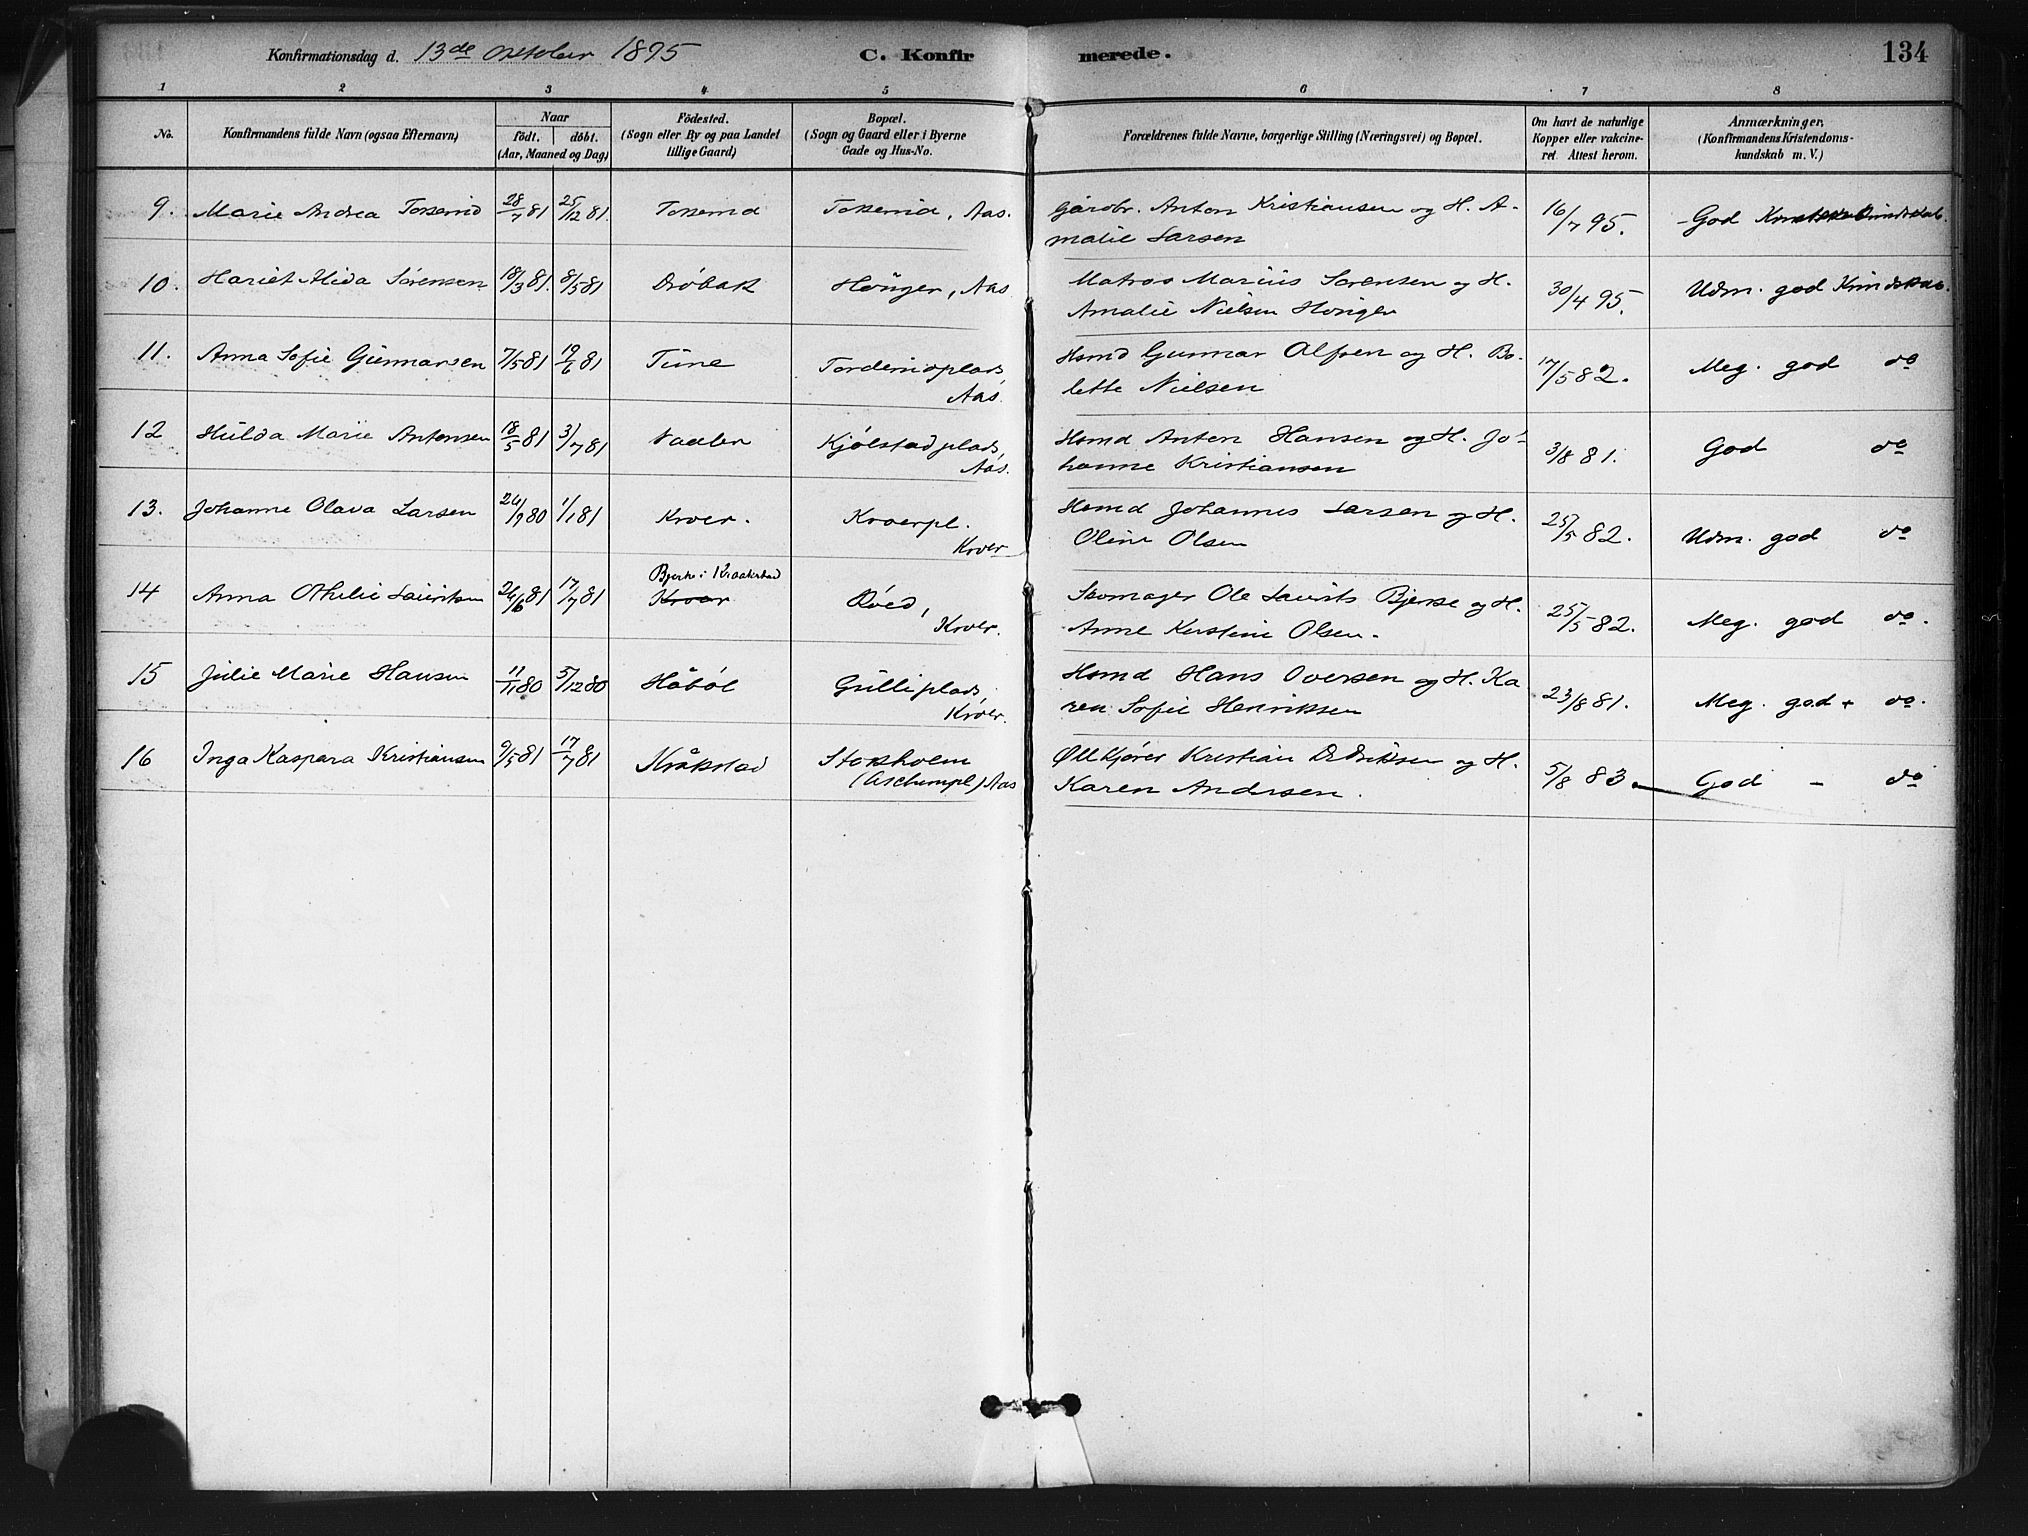 Konfirmationsdag d. 13de Oktober 1895 C. Konfir merede. 134
1 2 3 4 5 6 7 8
No. Konfirmandens fulde Navn (ogsaa Efternavn) Naar födt. döbt. (Aar, Maaned og Dag) Födested. (Sogn eller By og paa Landet tillige Gaard) Bopæl. (Sogn og Gaard eller i Byerne Gade og Hus-No. Forældrenes fulde Navne, borgerlige Stilling (Næringsvei) og Bopæl. Om havt de naturlige Kopper eller vakcineret Attest herom. Anmærkninger. (Konfirmandens Kristendomskundskab m. V.)
9. Marie Andrea Tosemd 28/7 81 25/12 81. Tosemd Tosemd, Aas. Gårdbr. Anton Kristiansen og H. A-
malie Larsen 16/7 95. God Kundskab.
10. Hariet Alida Sørensen 18/3 81. 8/5 81 Dröbak Höuger, Aas Matros Marius Sørensen og H.
Amalie Nielsen Höuger 30/4 95. Udm. god Kundskab.
11. Anna Sofie Gunnarsen 7/5 81 19/6 81 Tune
Aas. Hsmd Gunnar Olsen og H. Bo-
lette Nielsen 17/5 82. Meg. god do
12 Hulda Marie Antonsen 18/5 81 3/7 81 Vaaler Kjölstadplads,
Aas. Hsmd Anton Hansen og H. Jo-
hanne Kristiansen 3/8 81. God do
13. Johanne Olava Larsen 26/9 80 1/1 81 Kroer. Kroerpl.
Kroer Hsmd Johannes Larsen og H.
Oline Olsen 25/5 82. Udm. god do
14 Anna Othilie Lauritsen 26/6 81 17/7 81 Bjerke i Kraakstad
Kroer Röed,
Kroer. Skomager Ole Laurits Bjerke og H.
Anne Kirstine Olsen. 25/5 82. Meg. god do.
15 Julie Marie Hansen 11/11 80 5/12 80 Höböl Gulliplads,
Kroer. Hsmd Hans Oversen og H. Ka
ren Sofie Henriksen 23/8 81. Meg. god + do.
16 Inga Kaspara Kristiansen 9/5 81 17/7 81 Kråkstad Stokholm
(Aschumpl.) Aas Ølkjører Kristian Dedriksen og H.
Karen Andersen. 5/8 83. God - do